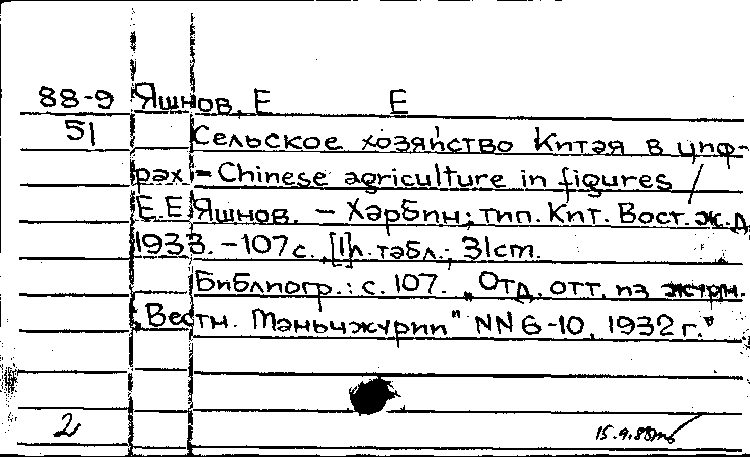 88-9 Яшнов, Е Е
51 Сельское хозяйство Китая в циф-
рах = Chinese agriculture in figures /
Е.Е. Яшнов. – Харбин; тип. Кит. Вост. ж.д,
1933. – 107 с., [1]л. табл.; 31 cm.
Библиогр.: с. 107. „Отд. отт. из журн.
„Вестн. Маньчжурии" NN 6-10, 1932 г."
2 15.9.88